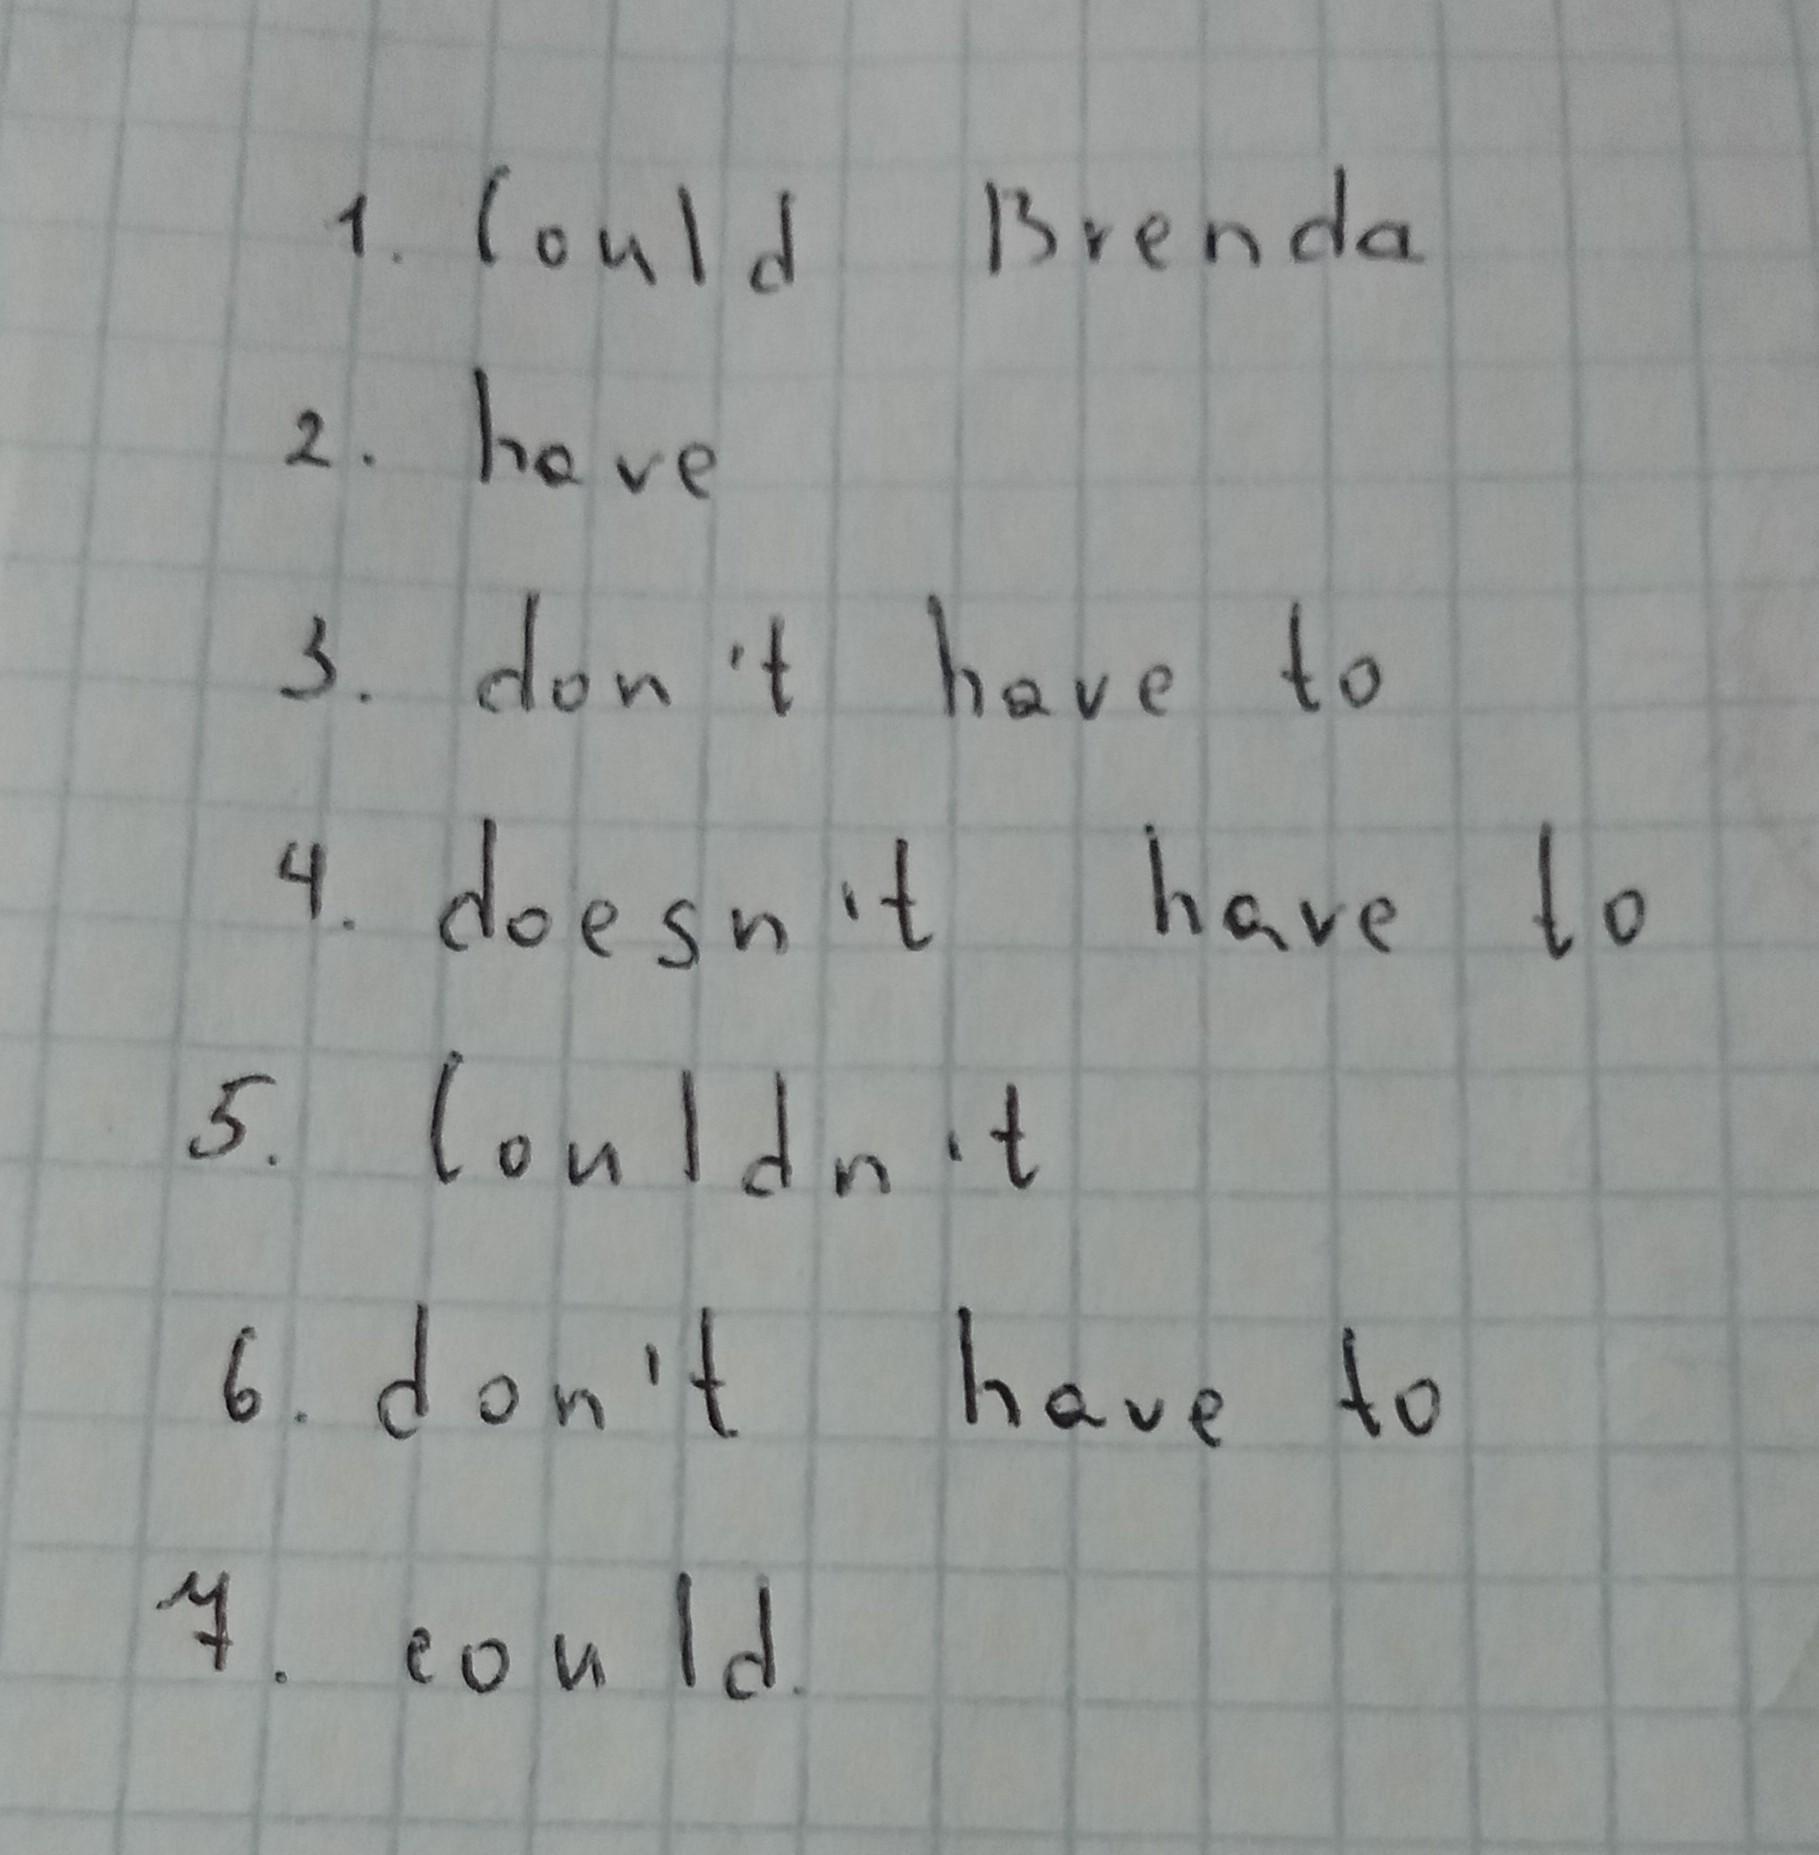 1. Could Brenda
2. have
3. don't have to
4. doesn't have to
5. Couldn't
6. don't have to
7. could.